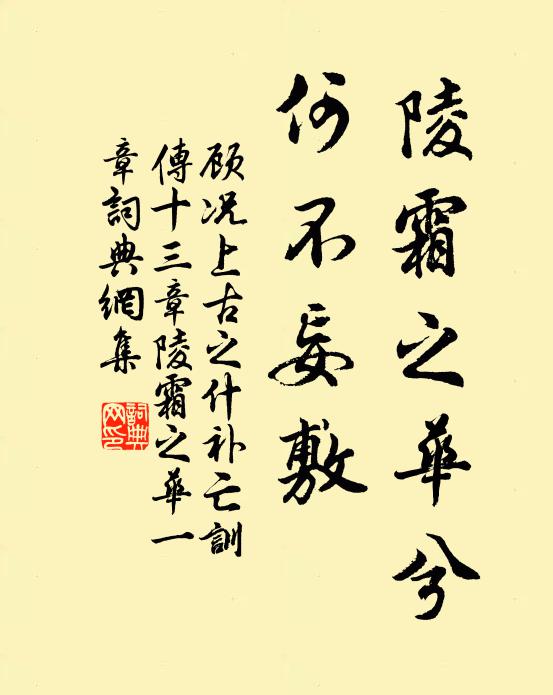 陵霜之華兮
何不妄敷
顾况上古之什补亡訓
傳十三章陵霜之華一
章詞典網集
詞典
网印